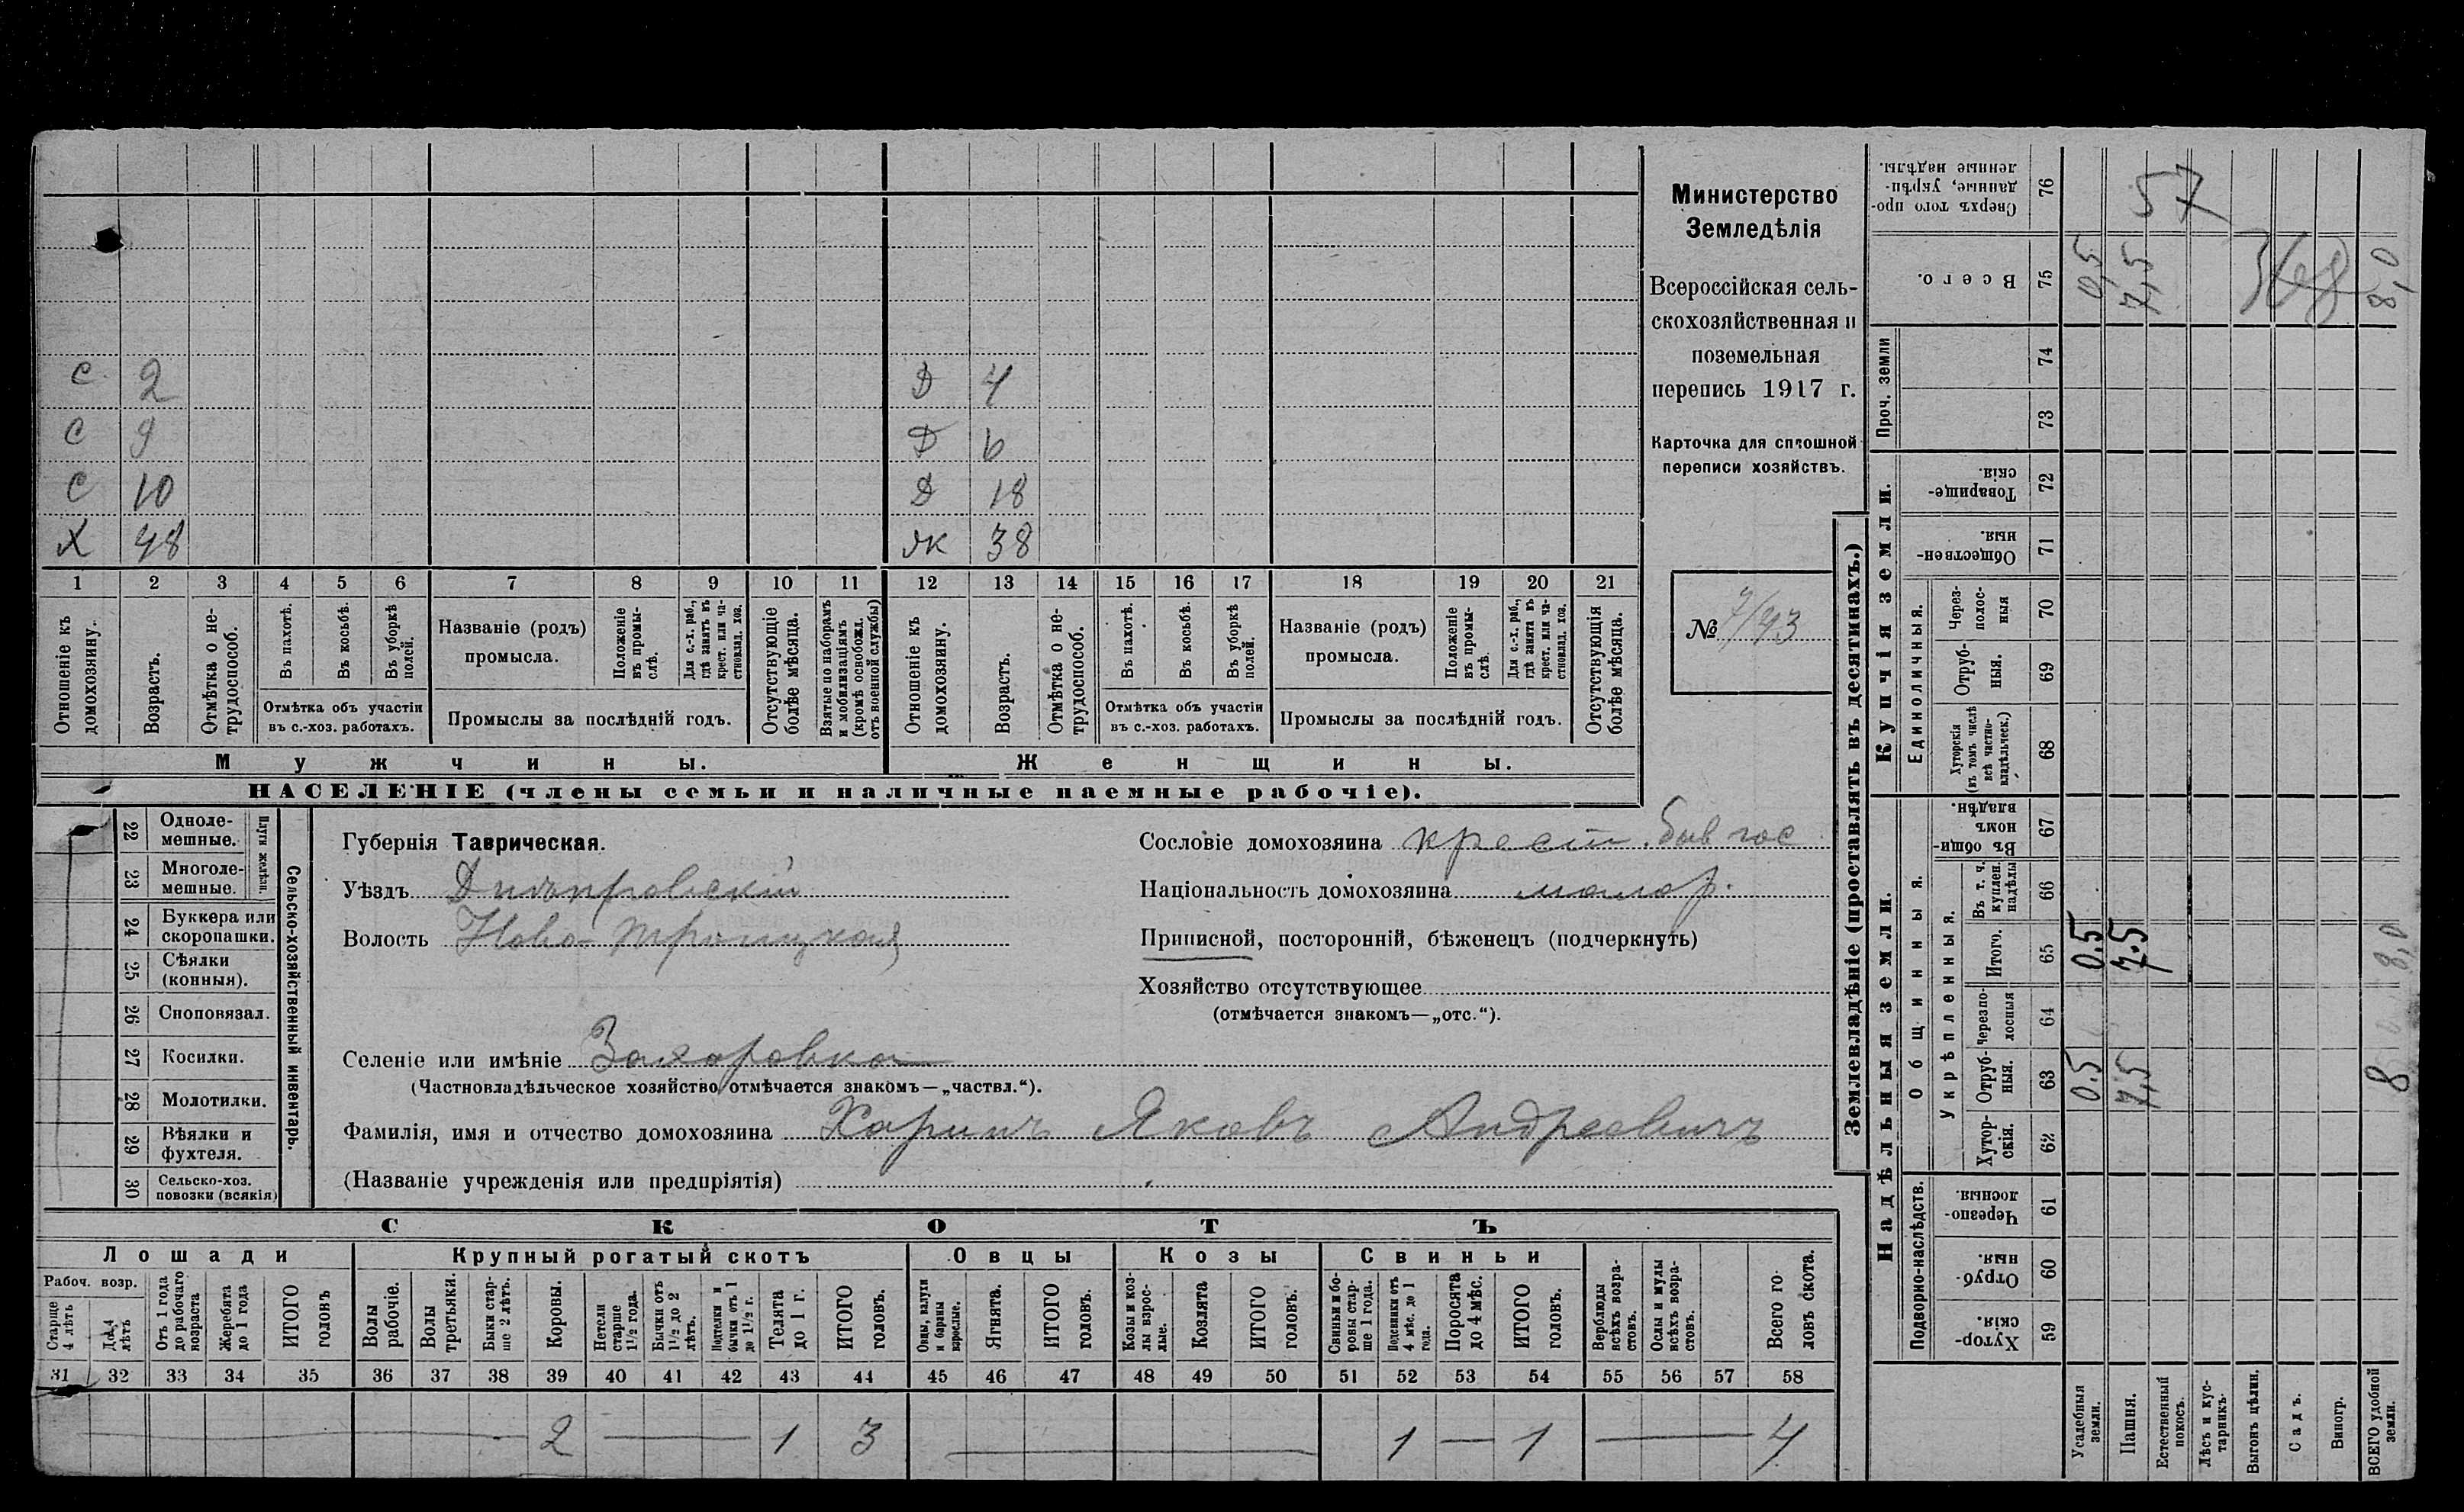 С 2 Д 4
С 9 Д 6
С 10 Д 18
Х 48 Жк 38
1 2 3 4 5 6 7 8 9 10 11 12 13 14 15 16 17 18 19 20 21
Отношеніе къ домохозяину.
Возрастъ.
Отмѣтка о не-трудоспособ.
Въ пахотѣ.
Въ косьбѣ.
Въ уборкѣ полей.
Отмѣтка объ участіи
въ с.-хоз. работахъ.
Названіе (родъ)
промысла.
Положеніе въ промы-слѣ.
Для с.-х. раб., гдѣ занятъ въ крест. или ча-стновлад. хоз.
Промыслы за послѣдній годъ.
Отсутствующіе болѣе мѣсяца.
Взятые по наборамъ и мобилизаціямъ (кромѣ освобожд. отъ военной службы)
Отношеніе къ домохозяину.
Возрастъ.
Отмѣтка о не-трудоспособ.
Въ пахотѣ.
Въ косьбѣ.
Въ уборкѣ полей.
Отмѣтка объ участіи
въ с.-хоз. работахъ.
Названіе (родъ)
промысла.
Положеніе въ промы-слѣ.
Для с.-х. раб., гдѣ занята въ крест. или ча-стновлад. хоз.
Промыслы за послѣдній годъ.
Отсутствующія болѣе мѣсяца.
Мужчины. Женщины.
НАСЕЛЕНІЕ (члены семьи и наличные наемные рабочіе).
Министерство
Земледѣлія
Всероссійская сель-
скохозяйственная и
поземельная
перепись 1917 г.
Карточка для сплошной
переписи хозяйствъ.
№ 7/43
22 Одноле-мешные.
23 Многоле-мешные.
Плуги желѣзн.
24 Буккера или скоропашки.
25 Сѣялки (конныя).
26 Сноповязал.
27 Косилки.
28 Молотилки.
29 Вѣялки и фухтеля.
30 Сельско-хоз. повозки (всякія)
Сельско-хозяйственный инвентарь.
Губернія Таврическая.
Уѣздъ Днѣпровскій
Волость Ново-Троицкая
Селеніе или имѣніе Захаровка
(Частновладѣльческое хозяйство отмѣчается знакомъ—„частвл.“).
Сословіе домохозяина крест. быв гос
Національность домохозяина малор.
Приписной, посторонній, бѣженецъ (подчеркнуть)
Хозяйство отсутствующее
(отмѣчается знакомъ—„отс.“).
Фамилія, имя и отчество домохозяина Харинъ Яковъ Андреевичъ
(Названіе учрежденія или предпріятія)
СКОТЪ
Лошади Крупный рогатый скотъ Овцы Козы Свиньи
Рабоч. возр.
Старше 4 лѣтъ
До 4 лѣтъ
Отъ 1 года до рабочаго возраста
Жеребята до 1 года
ИТОГО головъ
Волы рабочіе.
Волы третьяки.
Быки стар-ше 2 лѣтъ.
Коровы.
Нетели старше 1½ года.
Бычки отъ 1½ до 2 лѣтъ.
Подтелки и бычки отъ 1 до 1½ г.
Телята до 1 г.
ИТОГО головъ.
Овцы, валухи и бараны взрослые.
Ягнята.
ИТОГО головъ.
Козы и коз-лы взрос-лые.
Козлята
ИТОГО головъ.
Свиньи и бо-ровы стар-ше 1 года.
Подсвинки отъ 4 мѣс. до 1 года.
Поросята до 4 мѣс.
ИТОГО головъ.
Верблюды всѣхъ возра-стовъ.
Ослы и мулы всѣхъ возра-стовъ.
Всего го-ловъ скота.
31 32 33 34 35 36 37 38 39 40 41 42 43 44 45 46 47 48 49 50 51 52 53 54 55 56 57 58
2 — 1 3 — 1 — 1 — 4
Землевладѣніе (проставлять въ десятинахъ.)
Надѣльныя земли. Купчія земли. Проч. земли
Подворно-наслѣдств.
Общинныя.
Укрѣпленныя.
Единоличныя.
Хутор-скія. 59
Отруб-ныя. 60
Черезпо-лосныя. 61
Хутор-скія. 62
Отруб-ныя. 63 0.5 7,5 8
Черезпо-лосныя 64
Итого. 65 0.5 7.5 8,0
Въ т. ч. куплен. надѣлы 66
Въ общи-номъ владѣн. 67
Хуторскія (въ томъ числѣ всѣ частно-владѣльческ.) 68
Отруб-ныя. 69
Через-полос-ныя 70
Обществен-ныя. 71
Товарище-скія. 72
73
74
Всего. 75 0,5 7,5 368 8,0
Сверхъ того про-данные, укрѣп-ленные надѣлы. 76 57
Усадебныя земли.
Пашня.
Естественный покосъ.
Лѣсъ и кус-тарникъ.
Выгонъ цѣлин.
Садъ.
Виногр.
ВСЕГО удобной земли.